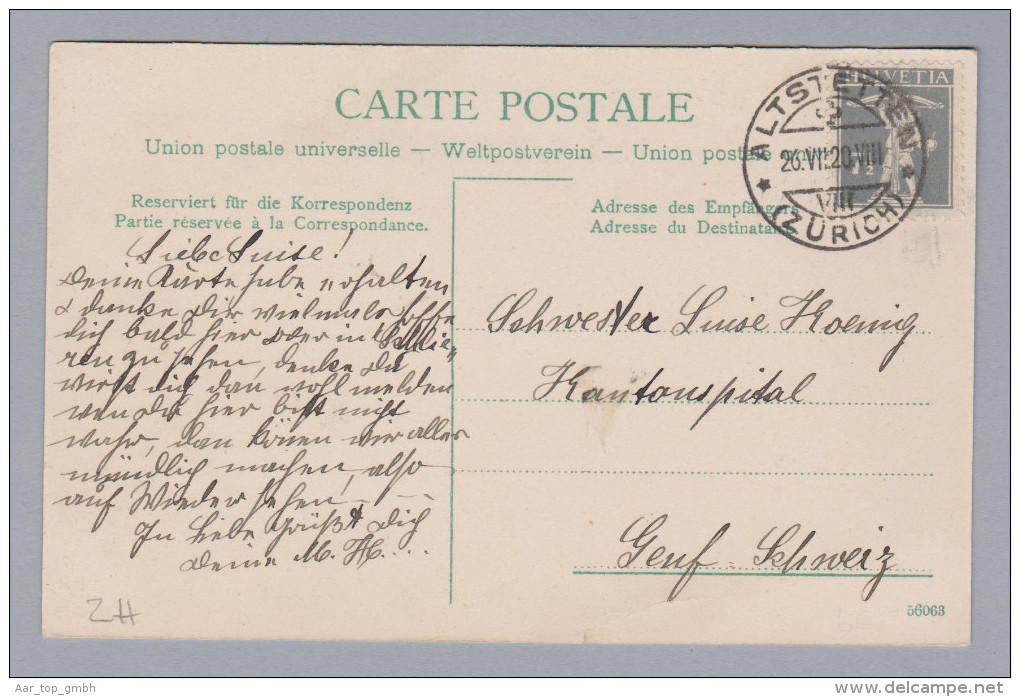 CARTE POSTALE
Union postale universelle — Weltpostverein — Union postale
HELVETIA
ALTSTETTEN
26.VII.20.VIII
VIII
(ZÜRICH)
Reserviert für die Korrespondenz
Partie réservée à la Correspondance.
Adresse des Empfängers
Adresse du Destinataire
Liebe Luise!
Deine Karte habe erhalten
& danke Dir vielmals hoffe
dich bald hier oder in Schlie-
ren zu sehen, denke Du
wirst dich dan wohl melden
wen Du hier bist nicht
wahr, dan könen wir alles
mündlich machen, also
auf Wieder sehen, — —
In Liebe grüßt Dich
Deine M. H....
Schwester Luise Koenig
Kantonspital
Genf - Schweiz
56063
ZH
Aar_top_gmbh
www.delcampe.net